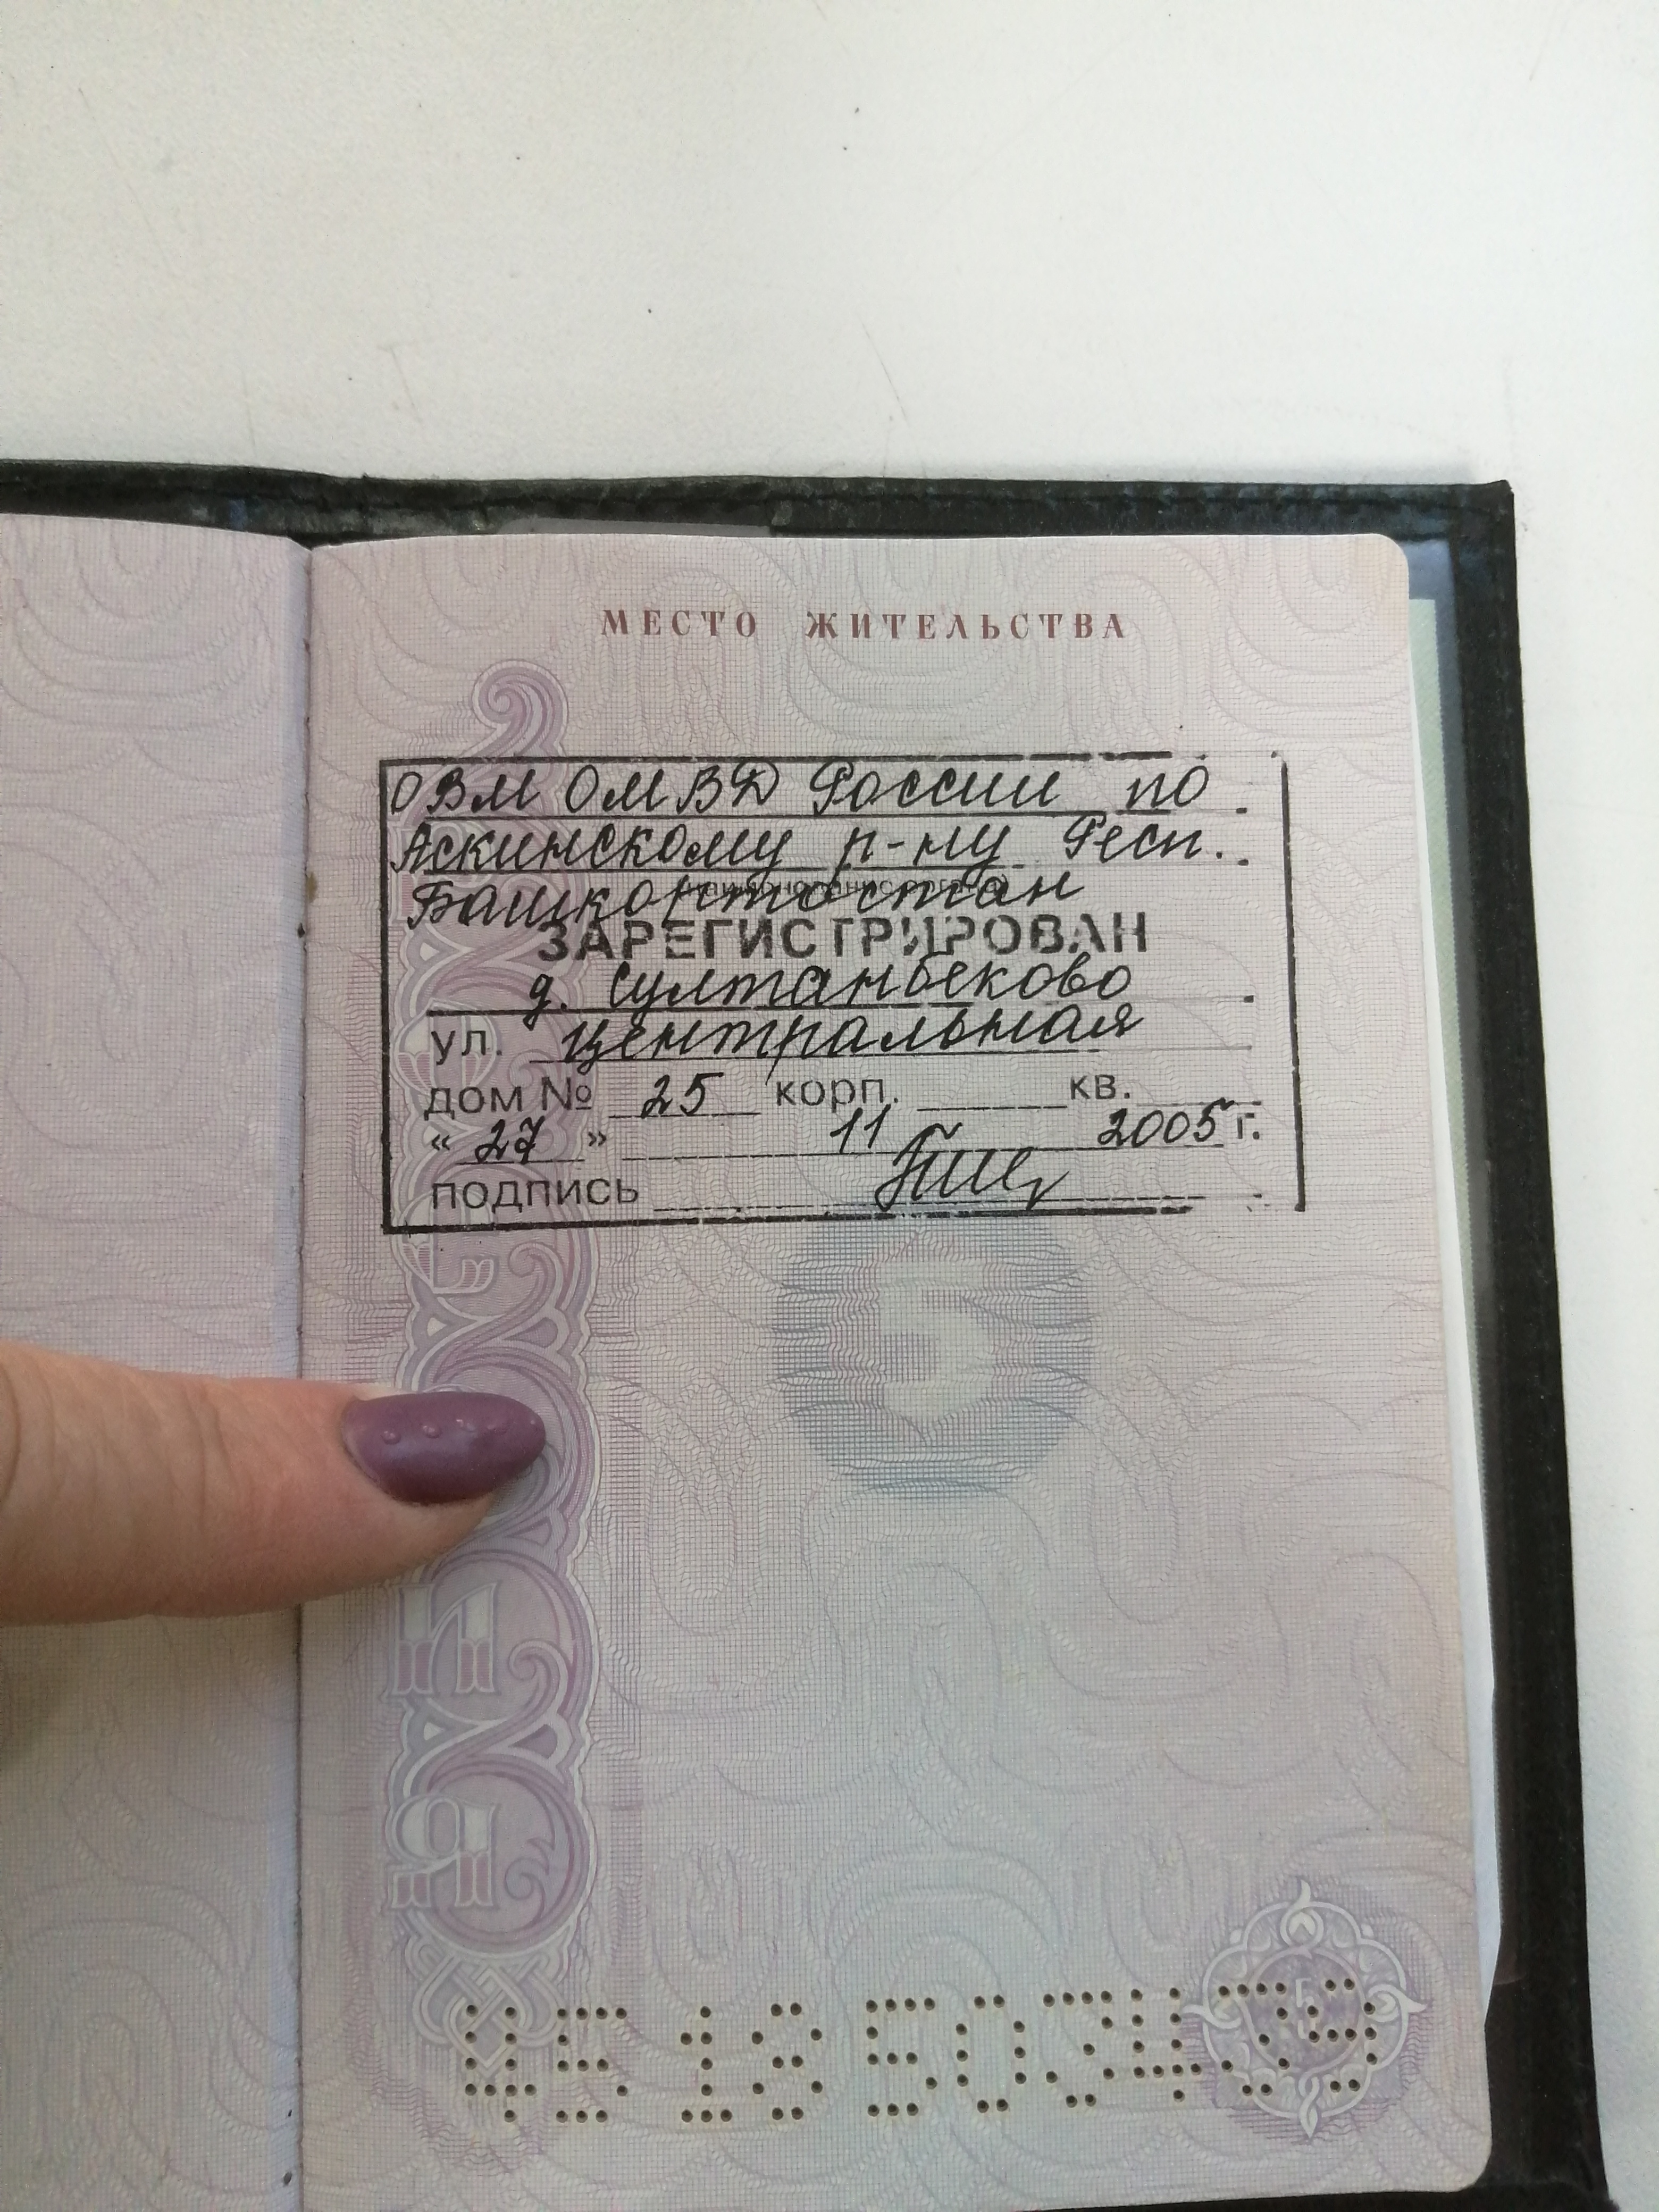 МЕСТО ЖИТЕЛЬСТВА
ОВМ ОМВД России по
Аскинскому р-ну Респ.
Башкортостан
ЗАРЕГИСТРИРОВАН
д. Султанбеково
ул. Центральная
дом № 25 корп. кв.
« 27 » 11 2005 г.
подпись
5
45 18 502439